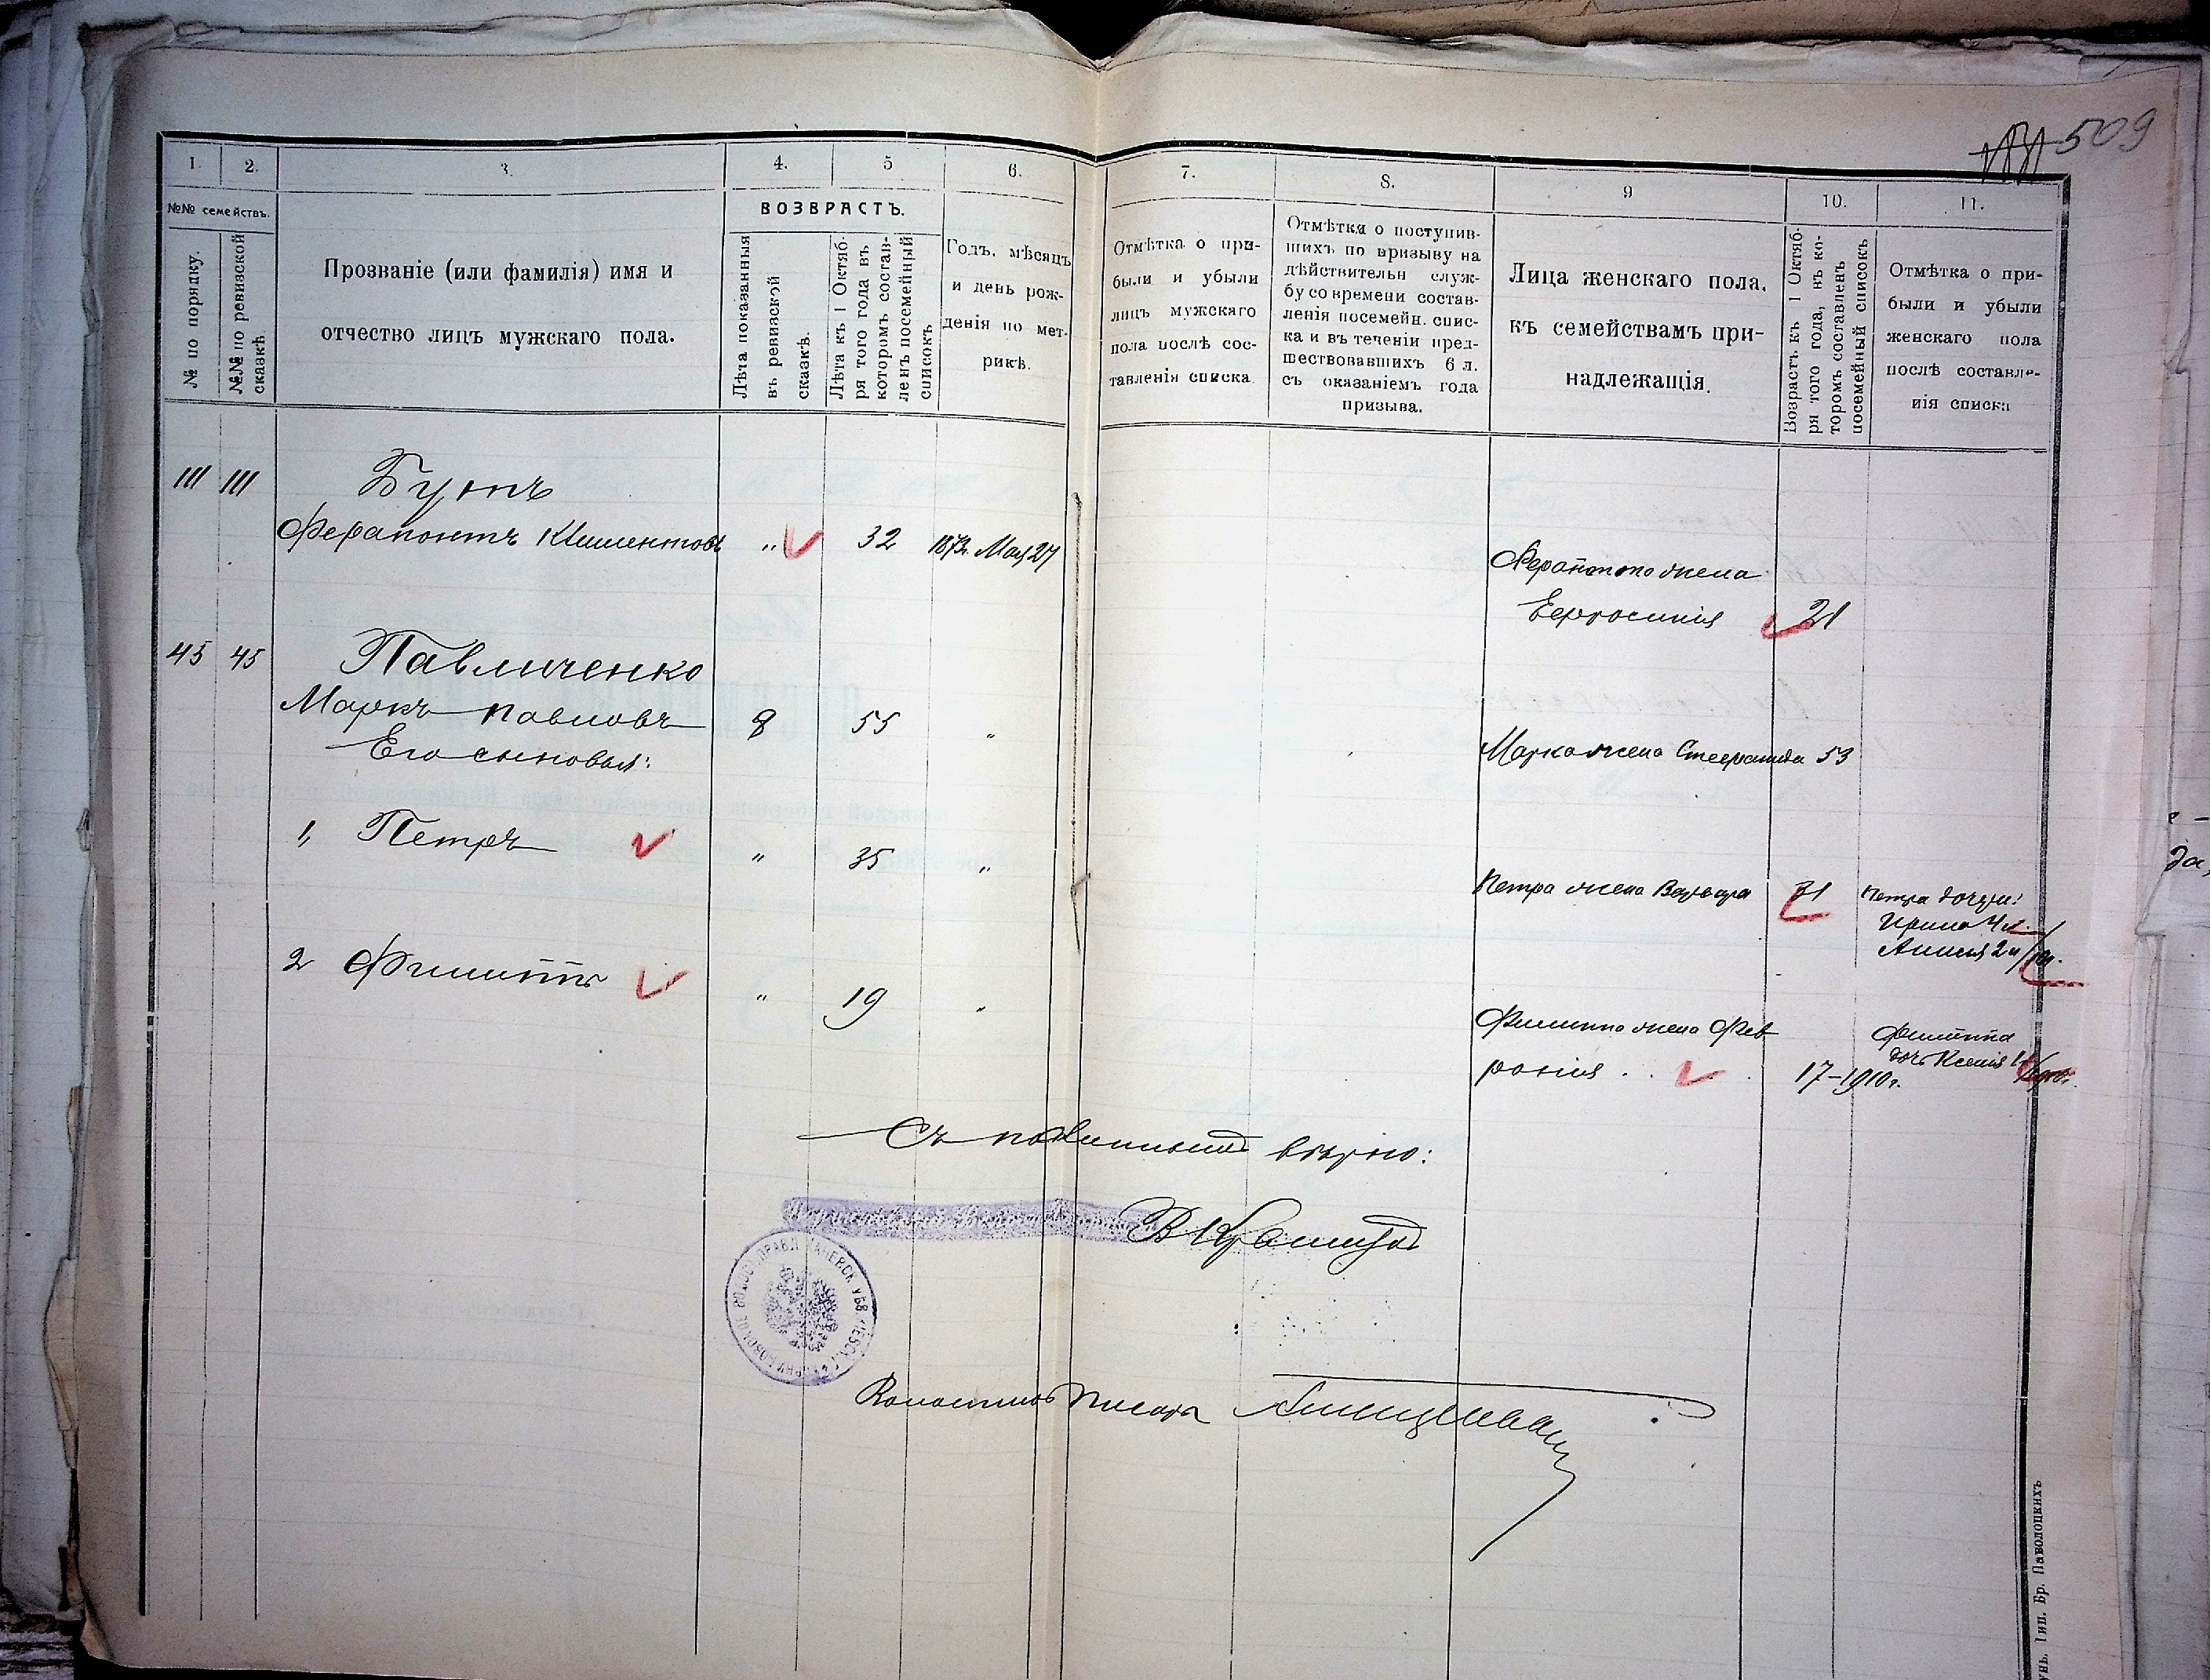 509
1.
2.
3.
4.
5
6.
7.
8.
9
10.
11.
№№ семействъ.
№ по порядку.
№№ по ревизской
сказкѣ.
Прозваніе (или фамилія) имя и
отчество лицъ мужскаго пола.
ВОЗРАСТЪ.
Лѣта показанныя
въ ревизской
сказкѣ.
Лѣта къ 1 Октяб-
ря того года въ
которомъ состав-
ленъ посемейный
списокъ
Годъ, мѣсяцъ
и день рож-
денія по мет-
рикѣ.
Отмѣтка о при-
были и убыли
лицъ мужскаго
пола послѣ сос-
тавленія списка.
Отмѣтка о поступив-
шихъ по призыву на
дѣйствительн служ-
бу со времени состав-
ленія посемейн. спис-
ка и въ теченіи пред-
шествовавшихъ 6 л.
съ оказаніемъ года
призыва.
Лица женскаго пола,
къ семействамъ при-
надлежащія.
Возрастъ къ 1 Октяб-
ря того года, въ ко-
торомъ составленъ
посемейный списокъ
Отмѣтка о при-
были и убыли
женскаго пола
послѣ составле-
нія списка
111 111 Бутъ
Ферапонтъ Климентовъ " 32 1873г. Мая 27
Ферапонта жена
Евфросинія 21
45 45 Павличенко
Маркъ Павловъ 8 55 "
Его сыновья:
Марка жена Степанида 53
1, Петръ " 35 "
Петра жена Варвара 31 Петра дочери:
Ирина 4 л.
Анисія 2 л.
2 Филиппъ " 19 "
Филиппа жена Фев
ронія . . 17-1910г.
Филиппа
дочь Ксенія
Съ подлиннымъ вѣрно:
ВОЛОС. ПРАВЛ. КАНЕВСК. УѢЗ. КІЕВСК.
Волостной Писарь
Тип. Бр. Паволоцкихъ